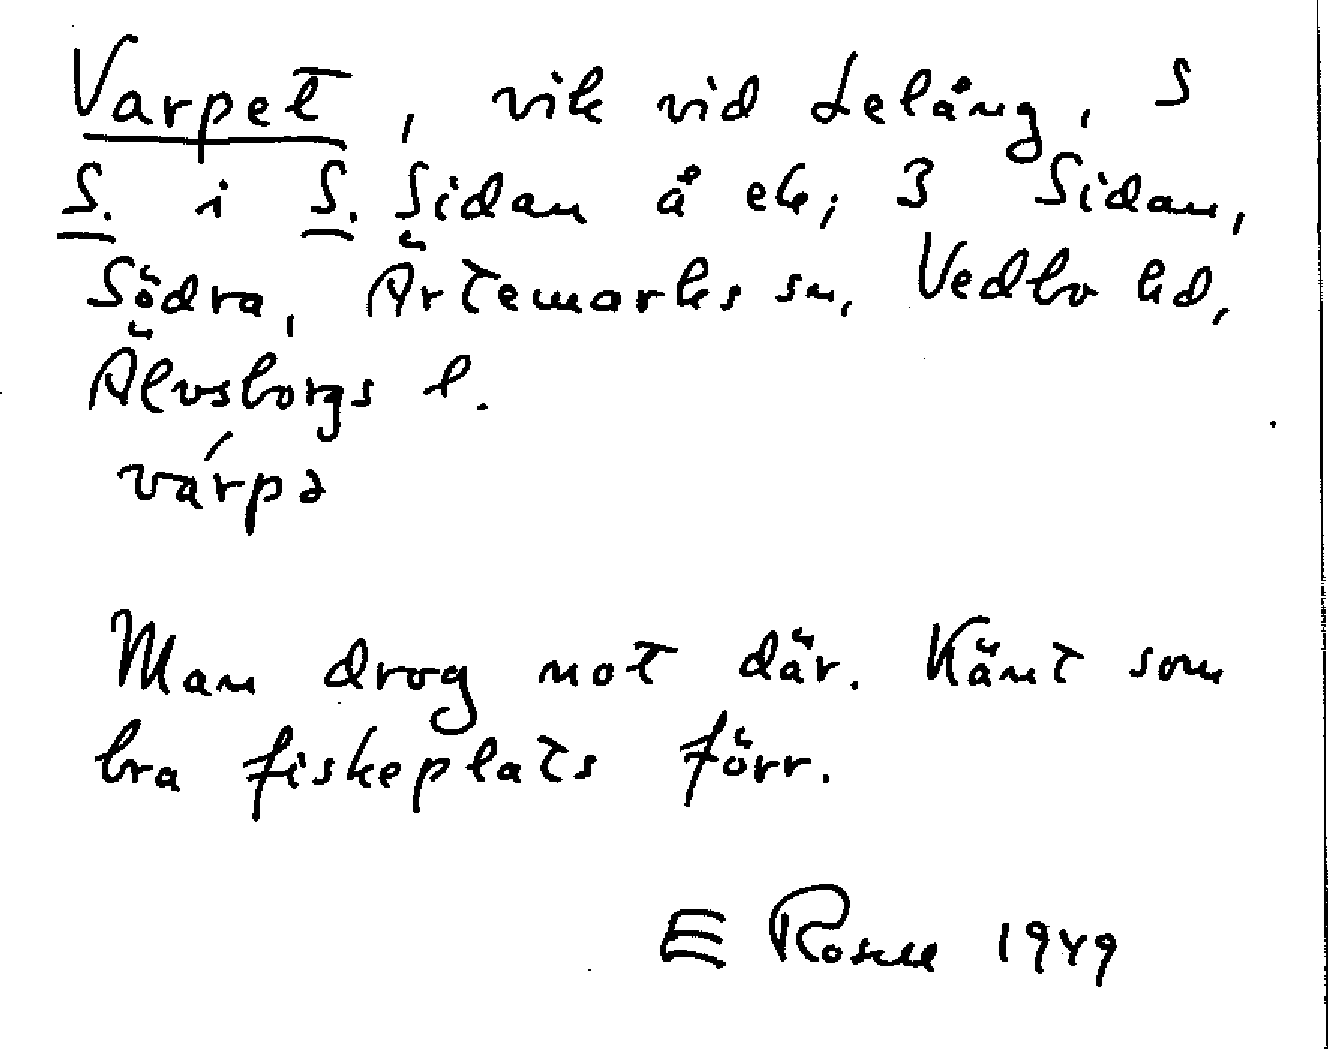 Varpet, vik vid Lelång, S
S. i S. Sidan å ek; 3 Sidan,
Södra, Ärtemarks sn, Vedbo hd,
Älvsborgs l.
várpə
Man drog not där. Känt som
bra fiskeplats förr.
E Rosell 1949